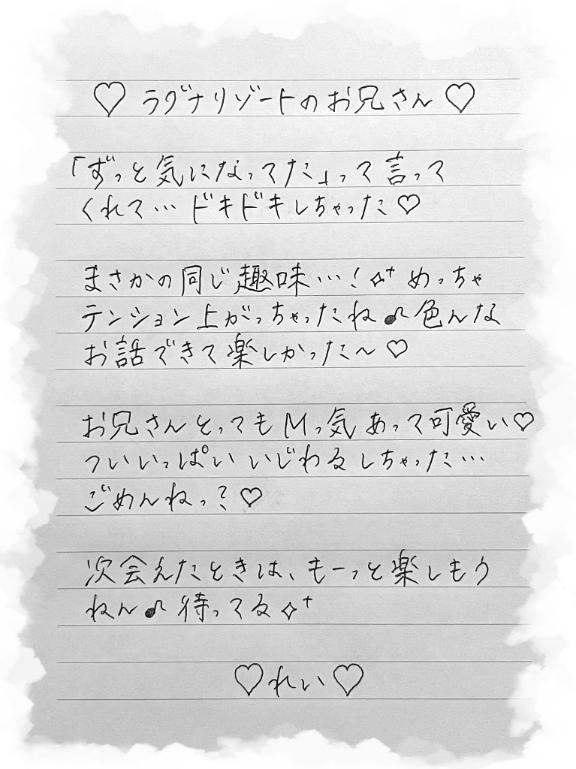 ♡ ラグナリゾートのお兄さん ♡
「ずっと気になってた」って言って
くれて… ドキドキしちゃった♡
まさかの同じ趣味…！✧⁺ めっちゃ
テンション上がっちゃったね♪色んな
お話できて楽しかった〜♡
お兄さんとってもMっ気あって可愛い♡
ついいっぱいいじわるしちゃった…
ごめんねっ？♡
次会えたときは、もーっと楽しもう
ねん♪待ってる✧⁺
♡れい♡